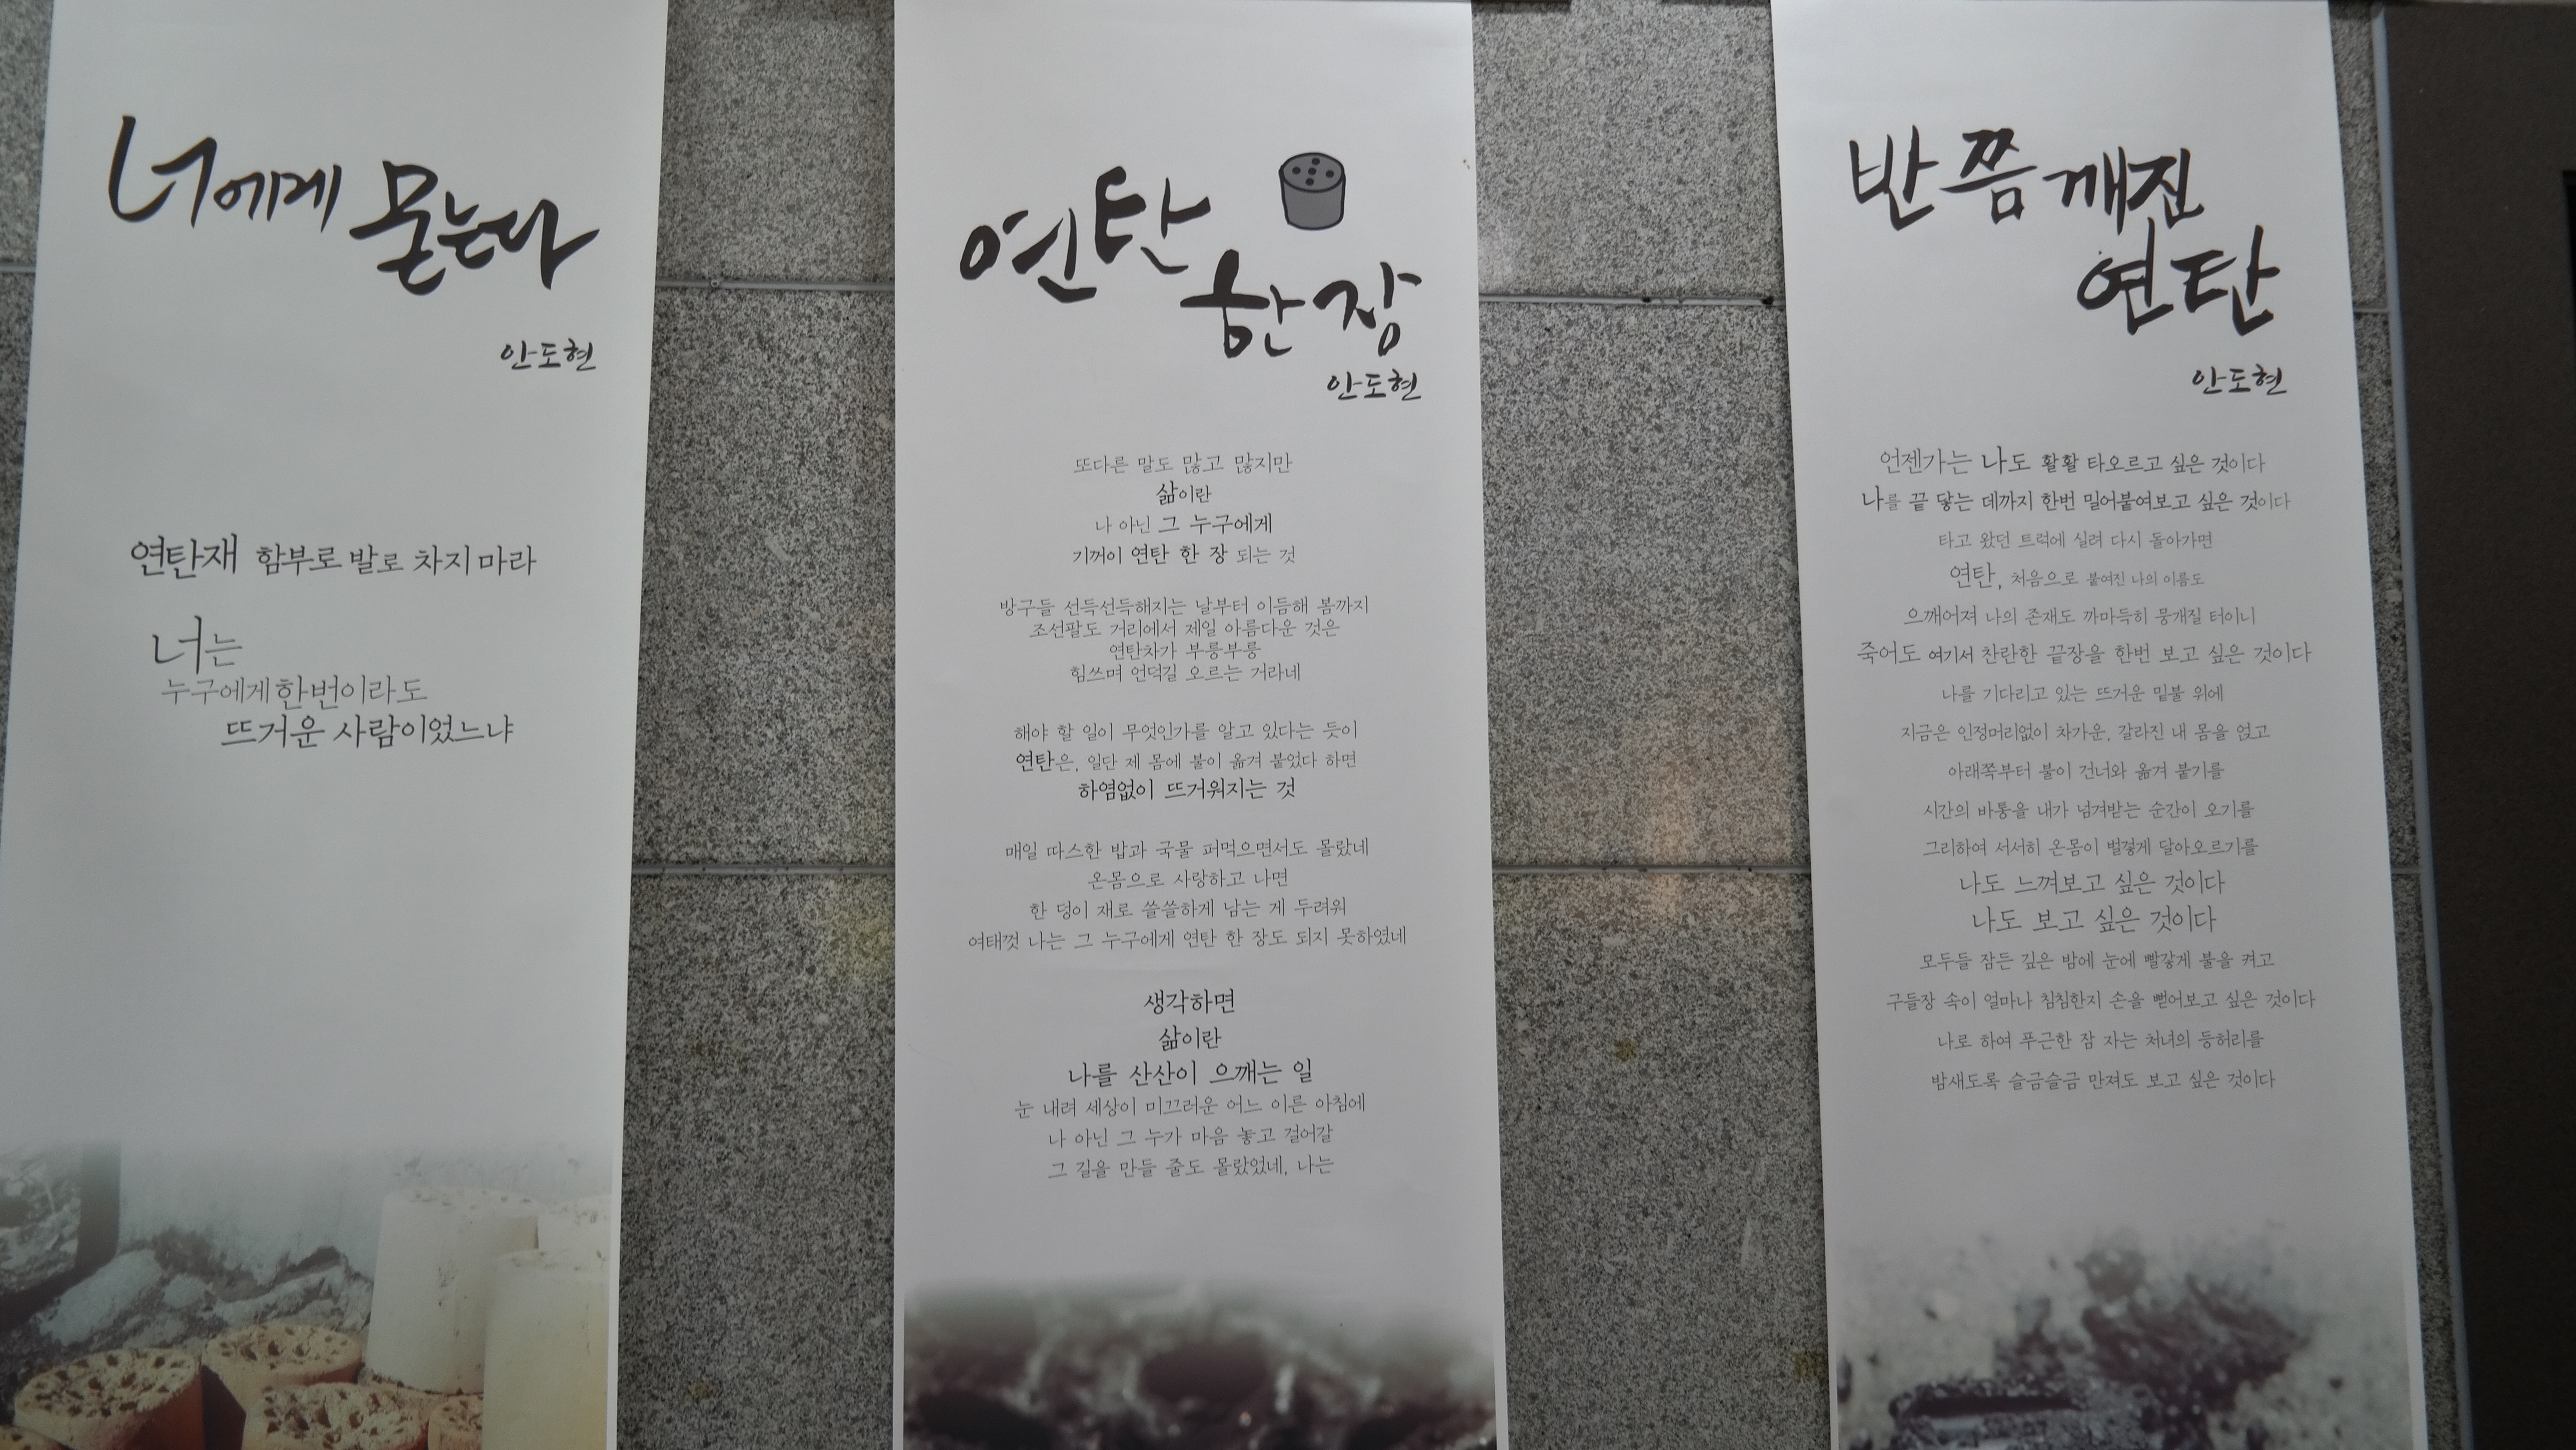 너에게 묻는다
안도현
연탄재 함부로 발로 차지 마라
너는
누구에게 한번이라도
뜨거운 사람이었느냐
연탄
한장
안도현
또다른 말도 많고 많지만
삶이란
나 아닌 그 누구에게
기꺼이 연탄 한 장 되는 것
방구들 선득선득해지는 날부터 이듬해 봄까지
조선팔도 거리에서 제일 아름다운 것은
연탄차가 부릉부릉
힘쓰며 언덕길 오르는 거라네
해야 할 일이 무엇인가를 알고 있다는 듯이
연탄은, 일단 제 몸에 불이 옮겨 붙었다 하면
하염없이 뜨거워지는 것
매일 따스한 밥과 국물 퍼먹으면서도 몰랐네
온몸으로 사랑하고 나면
한 덩이 재로 쓸쓸하게 남는 게 두려워
여태껏 나는 그 누구에게 연탄 한 장도 되지 못하였네
생각하면
삶이란
나를 산산이 으깨는 일
눈 내려 세상이 미끄러운 어느 이른 아침에
나 아닌 그 누가 마음 놓고 걸어갈
그 길을 만들 줄도 몰랐었네, 나는
반쯤 깨진
연탄
안도현
언젠가는 나도 활활 타오르고 싶은 것이다
나를 끝 닿는 데까지 한번 밀어붙여보고 싶은 것이다
타고 왔던 트럭에 실려 다시 돌아가면
연탄, 처음으로 붙여진 나의 이름도
으깨어져 나의 존재도 까마득히 뭉개질 터이니
죽어도 여기서 찬란한 끝장을 한번 보고 싶은 것이다
나를 기다리고 있는 뜨거운 밑불 위에
지금은 인정머리없이 차가운, 갈라진 내 몸을 얹고
아래쪽부터 불이 건너와 옮겨 붙기를
시간의 바통을 내가 넘겨받는 순간이 오기를
그리하여 서서히 온몸이 벌겋게 달아오르기를
나도 느껴보고 싶은 것이다
나도 보고 싶은 것이다
모두들 잠든 깊은 밤에 눈에 빨갛게 불을 켜고
구들장 속이 얼마나 침침한지 손을 뻗어보고 싶은 것이다
나로 하여 푸근한 잠 자는 처녀의 등허리를
밤새도록 슬금슬금 만져도 보고 싶은 것이다